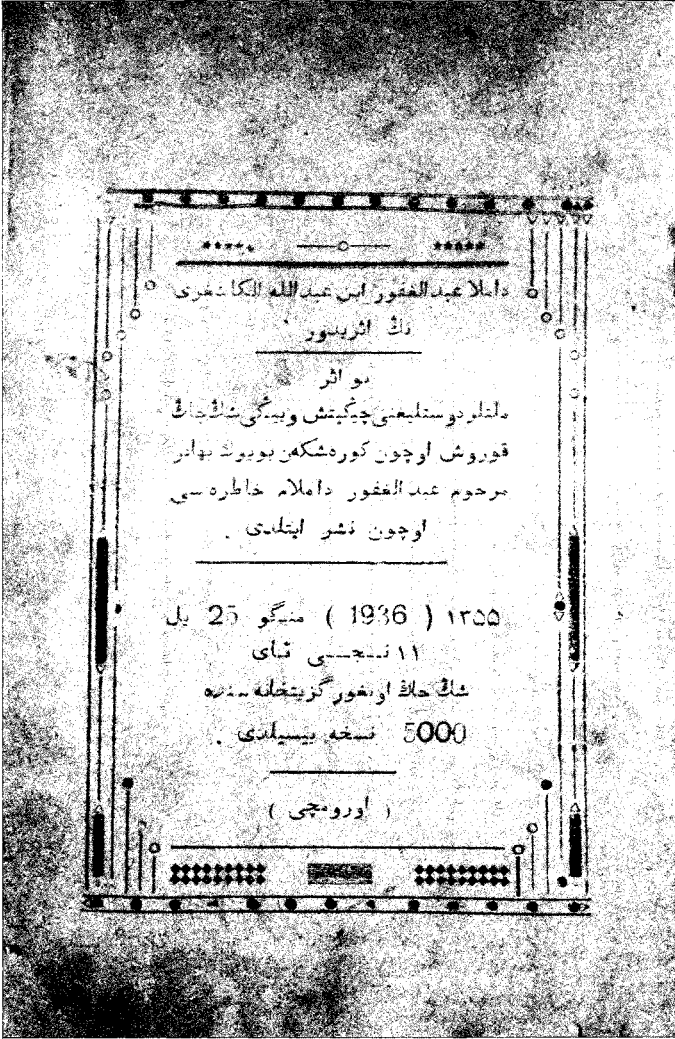 داملا عبدالغفور ابن عبدالله الكاشغری
نڭ اثریدور
بو اثر
ملتلر دوستلیغنی چیڭیتش و ییڭی شڭ جاڭ
قوروش اوچون كوره‌شكەن بویوك بهادر
مرحوم عبدالغفور داملام خاطره‌سی
اوچون نشر ایتلدی .
۱۳۵۵ ( 1936 ) منگو 25 یل
۱۱ نـچـی ئای
شڭ جاڭ اویغور گزیتخانه‌سنده
5000 نسخه بیسیلدی .
( اورومچی )